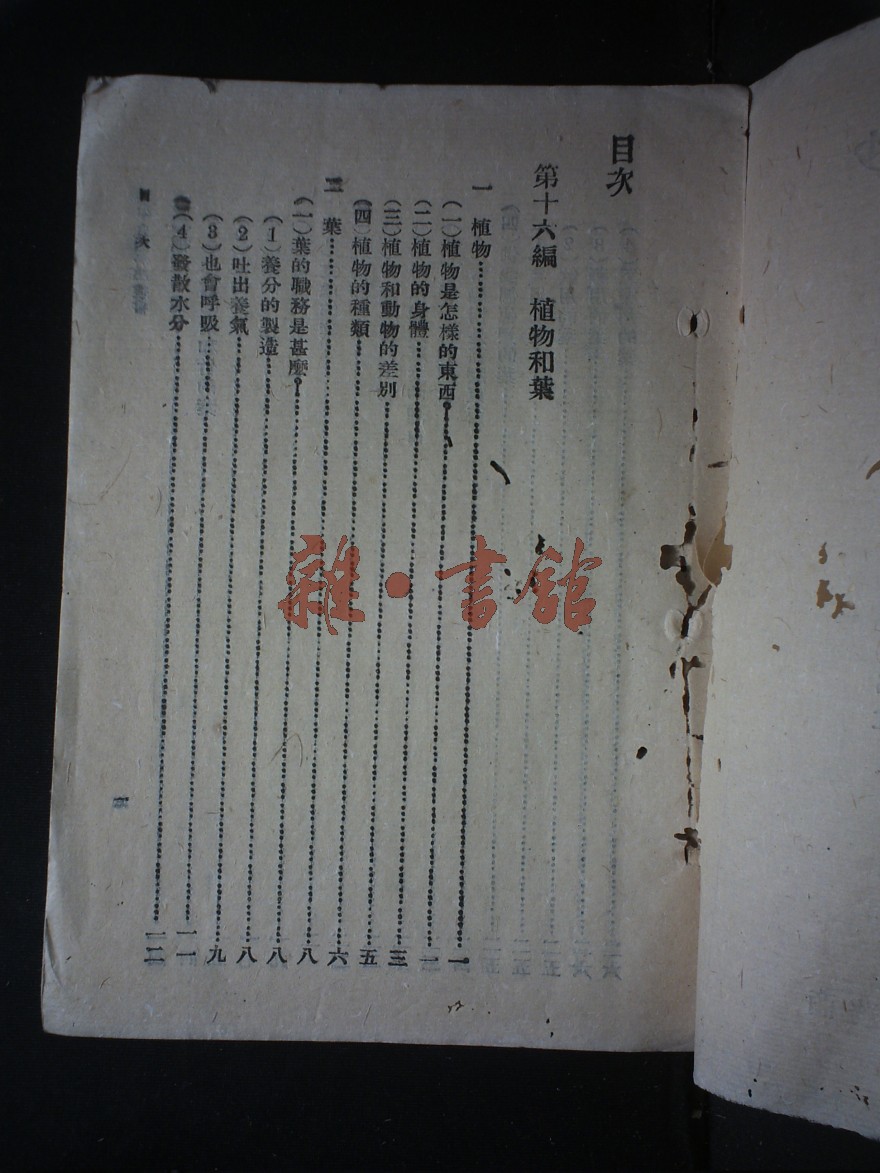 目次
第十六編　植物和葉
一　植物……一
(一)植物是怎樣的東西……一
(二)植物的身體……三
(三)植物和動物的差別……五
(四)植物的種類……六
二　葉……八
(一)葉的職務是甚麼……八
(1)養分的製造……八
(2)吐出養氣……九
(3)也會呼吸……一一
(4)發散水分……一二
目次
雜·書館